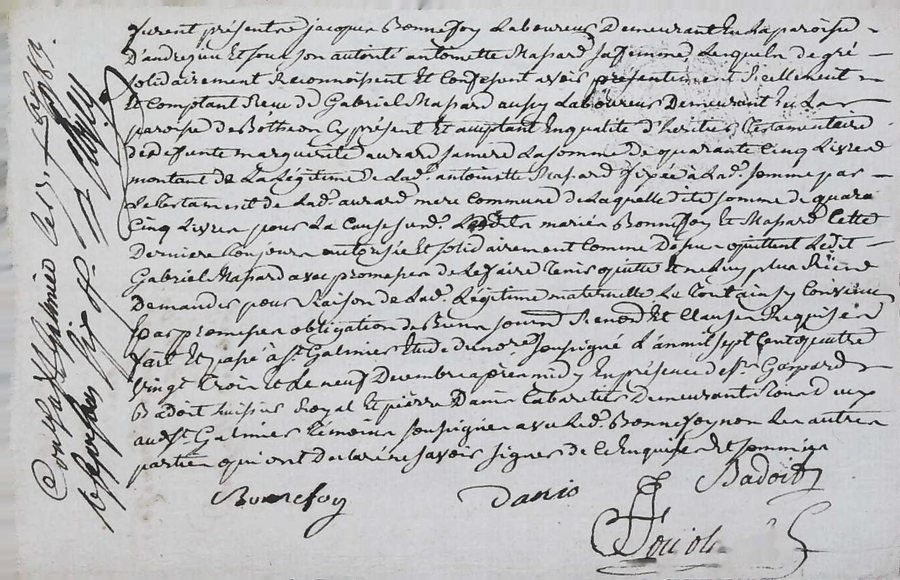 furent présents jacques Bonnefoy Laboureur Demeurant En La paroisse
D'andrezieu Et sous son autorité antoinette Mapard sa femme Lesquels de gré
solidairement Reconnoissent Et Confessent avoir présentement Reellement
Et Comptant Receu de Gabriel Mapard aussy Laboureur Demeurant En La
paroisse de Botheon Cy présent Et acceptant En qualité d'heritier Testamentaire
de deffunte marguerite aurard sa mere La somme De quarante Cinq Livres
montant de La Légitime de Lad. antoinette Mapard fixée a Lad. somme par
Le testament de Lad. aurard mere Commune de Laquelle dite somme de quarante
Cinq Livres pour La Cause susd. Lesdits mariés Bonnefoy Et Mapard Cette
Derniere toujours authorisée Et solidairement Comme Dessus quittent Ledit
Gabriel Mapard avec promesse de Le faire tenir quitte Et ne Luy plus Rien
Demander pour Raison de Lad. Légitime maternelle Le tout ainsy Convenu
par promesse obligation de Biens soumis. Renon. Et Clauses Requises
fait Et passé à St Galmier Etude du no.re soussigné L'an mil sept Cent quatre
vingt trois et Le neuf Decembre apres midy En présence de Sr Gaspard
Badoit huissier Royal Et pierre Danis Cabaretier Demeurants tous deux
aud. St Galmier témoins soussignés avec Led. Bonnefoy non Les autres
parties qui ont Declaré ne savoir signer de Ce Enquises Et sommées
Bonnefoy Danis Badoit
Contrôlé à St Galmier Le